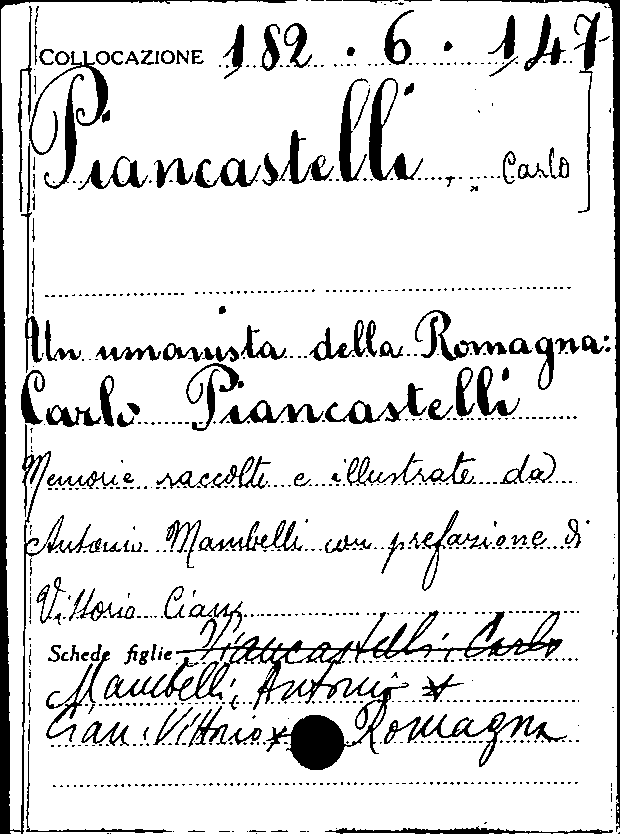 COLLOCAZIONE 182 . 6 . 147
Piancastelli, Carlo
Un umanista della Romagna:
Carlo Piancastelli
Memorie raccolte e illustrate da
Antonio Mambelli con prefazione di
Vittorio Cian
Schede figlie Piancastelli, Carlo
Mambelli, Antonio x
Cian, Vittorio x Romagna